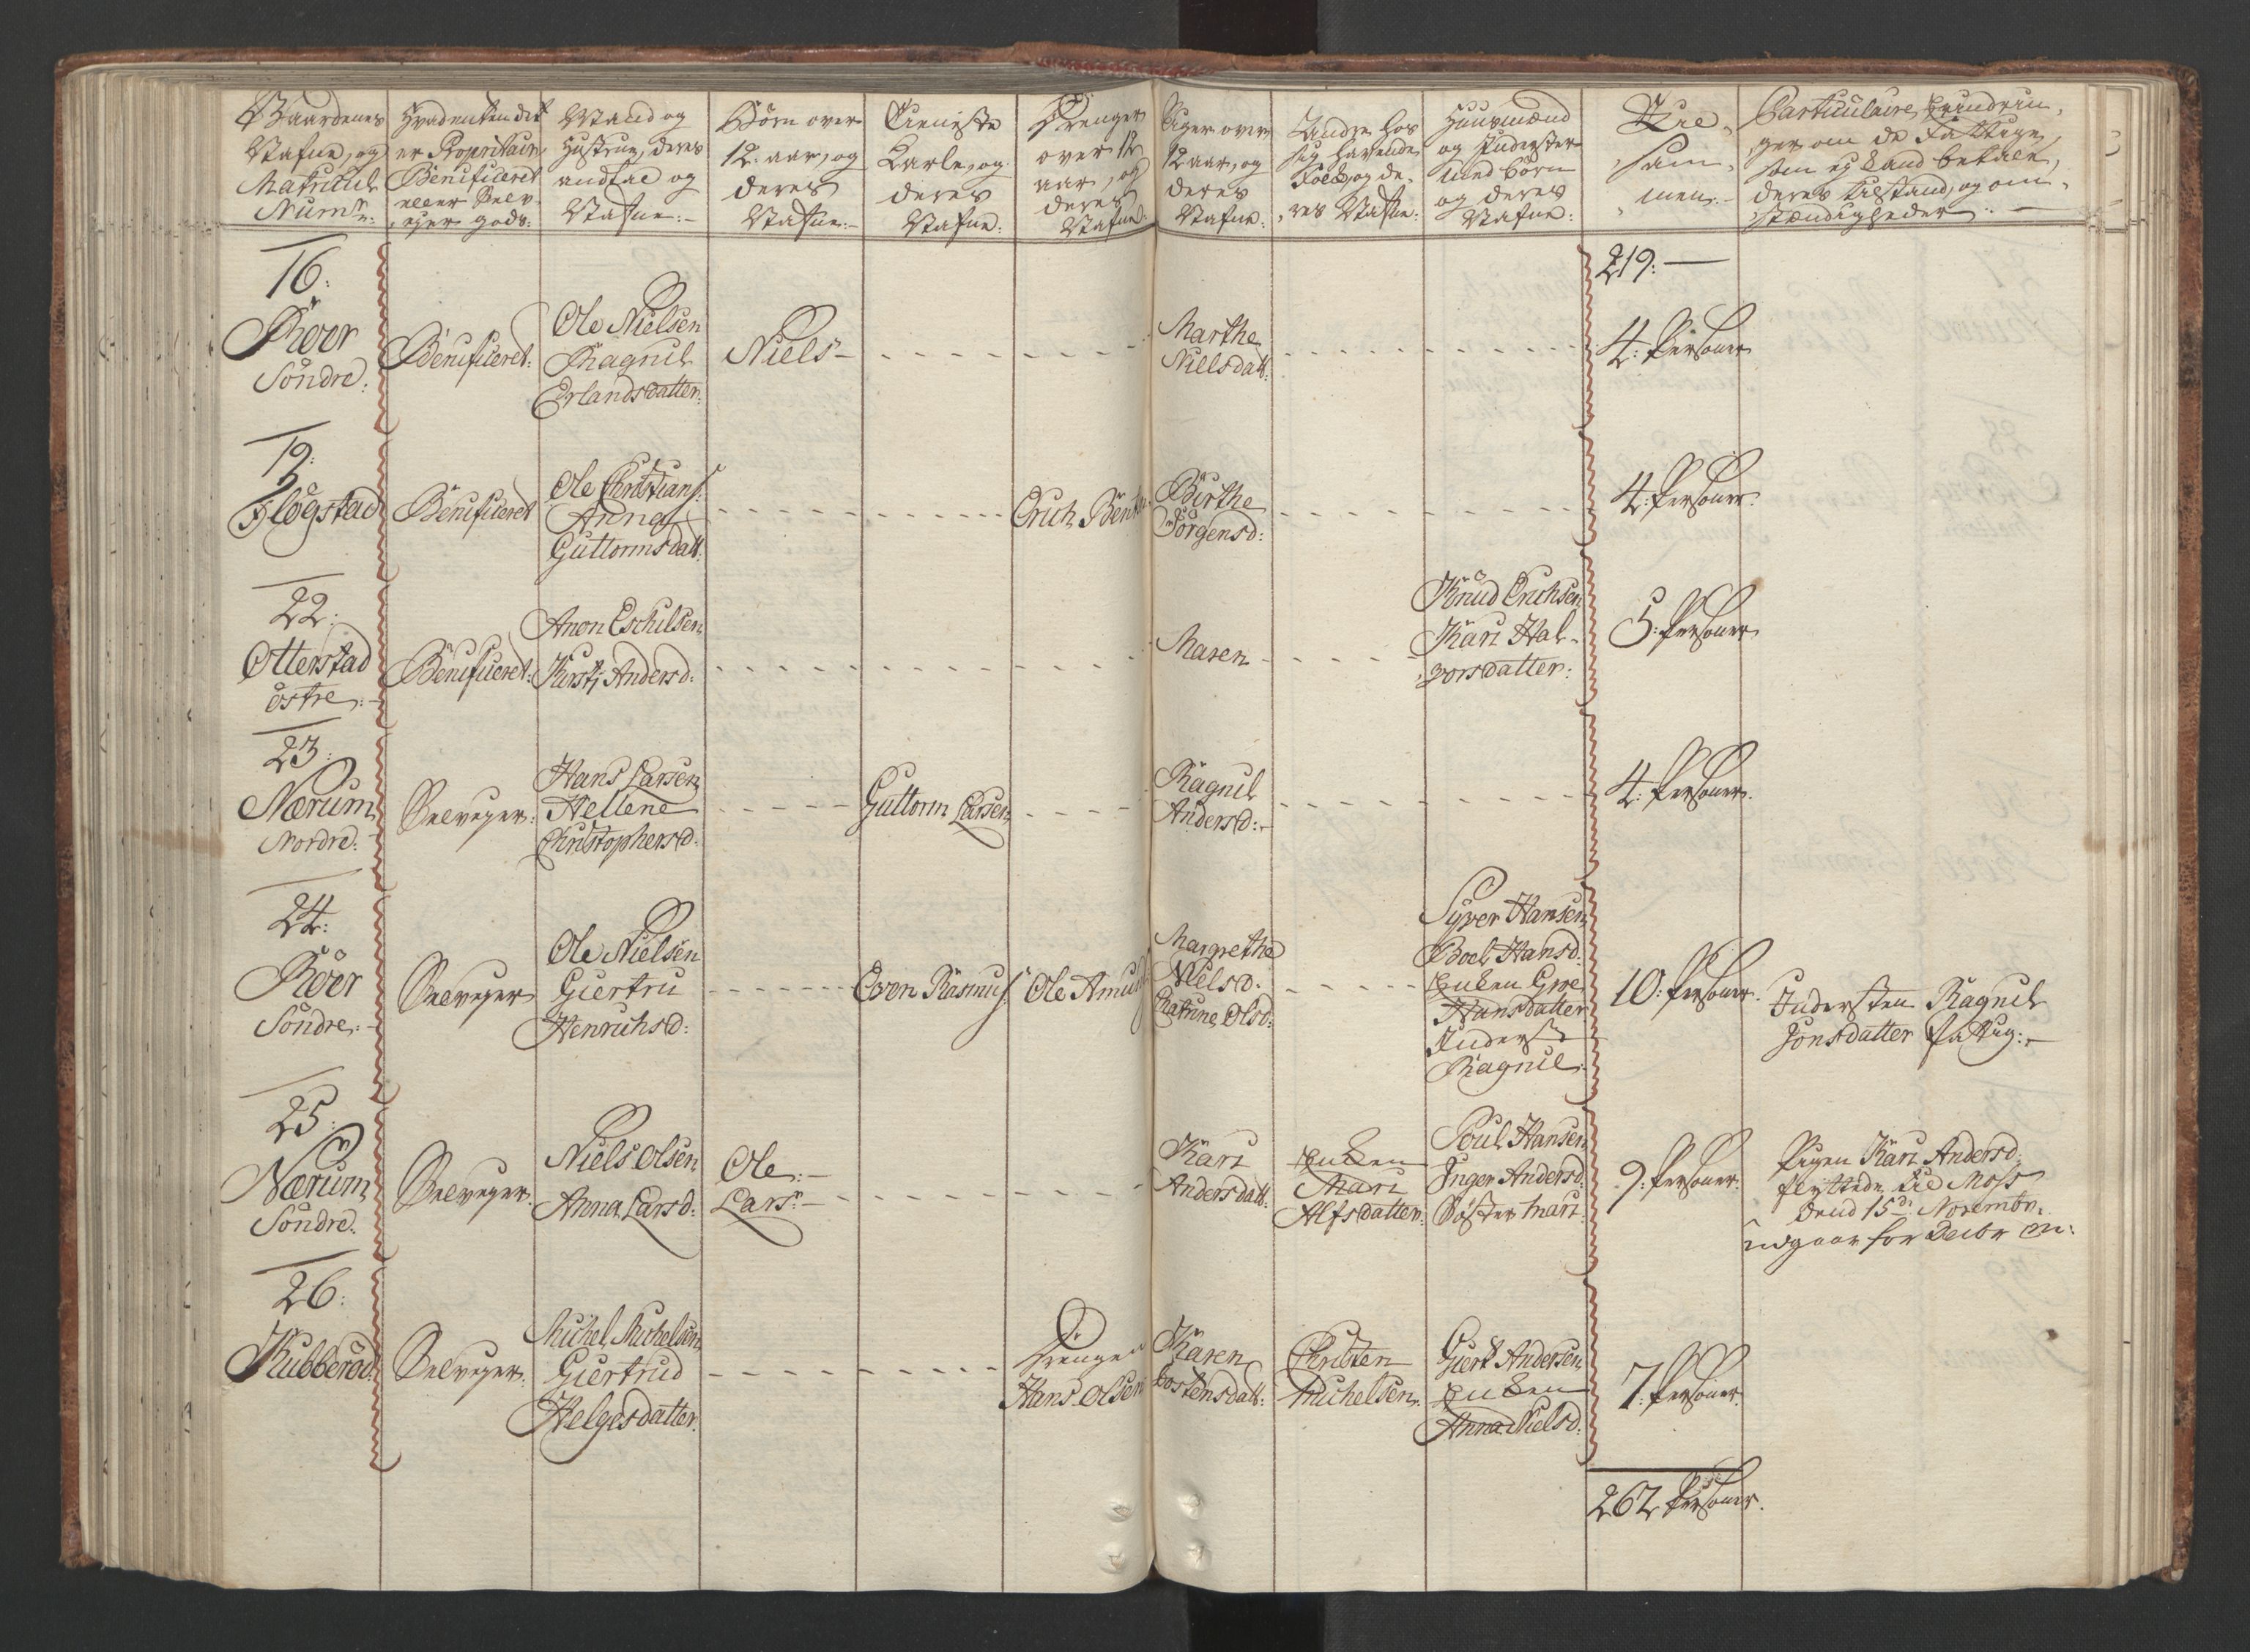 Gaardenes
Nafne, og
Matricul
Num:
Hvad enten det
er Proprietair,
Benificeret
eller Selv-
ejer gods:
Mand og
Hustrue, deres
andtal og
Nafne:-
Börn over
12: aar, og
deres
Nafne:-
Tieniste
Karle, og
deres
Nafne:
Drenger
over 12
aar, og
deres
Nafne:
Piger over
12 aar, og
deres
Nafne:
Andre hos
sig havende
Folck, og de-
res Nafne:
Huusmænd
og Inderster
med börn
og deres
Nafne:
Til-
sam-
men:-
Particulaire, Erindrin-
ger om de Fattige,
som ej kand betale,
deres tilstand, og om-
stændigheder:-
219:-
16:
Röer
Söndre:
Benificeret:
Ole Nielsen
Ragnil
Erlandsdatter:
Niels-
Marthe
Nielsdatt:
4: Persohner
19:
Flogstad
Benificeret
Ole Christians:
Anna
Guttormsdatt:
Erich Bent
Birthe
Jörgensd:
4: Persohner:
22:
Otterstad
östre:-
Benificeret:
Anon Eschilsen
Kirsti Andersd:
Maren
Knud Erichsen
Kari Hal-
vorsdatter:
5: Persohner
23:
Nærum
Nordre:
Selvejer:
Hans Larsen
Hellene
Christophersd:
Guttorm Larsen
Ragnil
Andersd:-
4: Persohner:
24:
Röer
Söndre:-
Selvejer
Ole Nielsen
Giertru
Henrichsd:
Even Rasmus:
Ole Amund
Margrethe
Nielsd:
Catrine Olsd:
Syver Hansen
Boel Hansd:
Enken Groe
Hansdatter
Inderst
Ragnil:
10: Persohner:
Indersten Ragnil
Jonsdatter fattig:-
25:
Nærum
Söndre:
Selvejer:
Niels Olsen
Anna Larsd:
Ole:-
Lars:-
Kari
Andersdatt:
Enken
Mari
Alfsdatter:
Poul Hansen
Inger Andersd:
Söster Mari:
9: Persohner:
Pigen Kari Andersd:
flyttede til Moss
dend 15de Novembr:
udgaar for Decbr M:
26:
Kubberöd
Selvejer:
Michel Michelsen
Giertrud
Helgesdatter:
Drengen
Hans Olsen
Karen
Tostensdatt:
Christen
Michelsen:
Giert Andersen
Enken
Anna Nielsd:
7: Persohner:
262 Persohner: